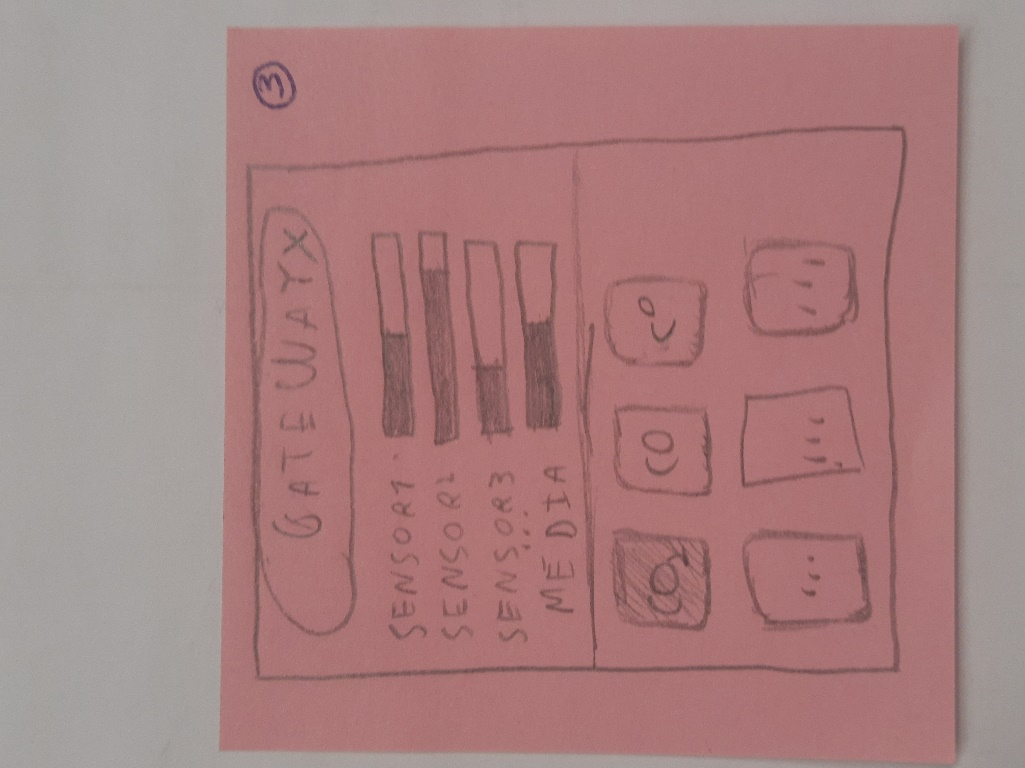 3
GATEWAY X
SENSOR1
SENSOR2
SENSOR3
...
MEDIA
CO2 CO C°
... ... ...